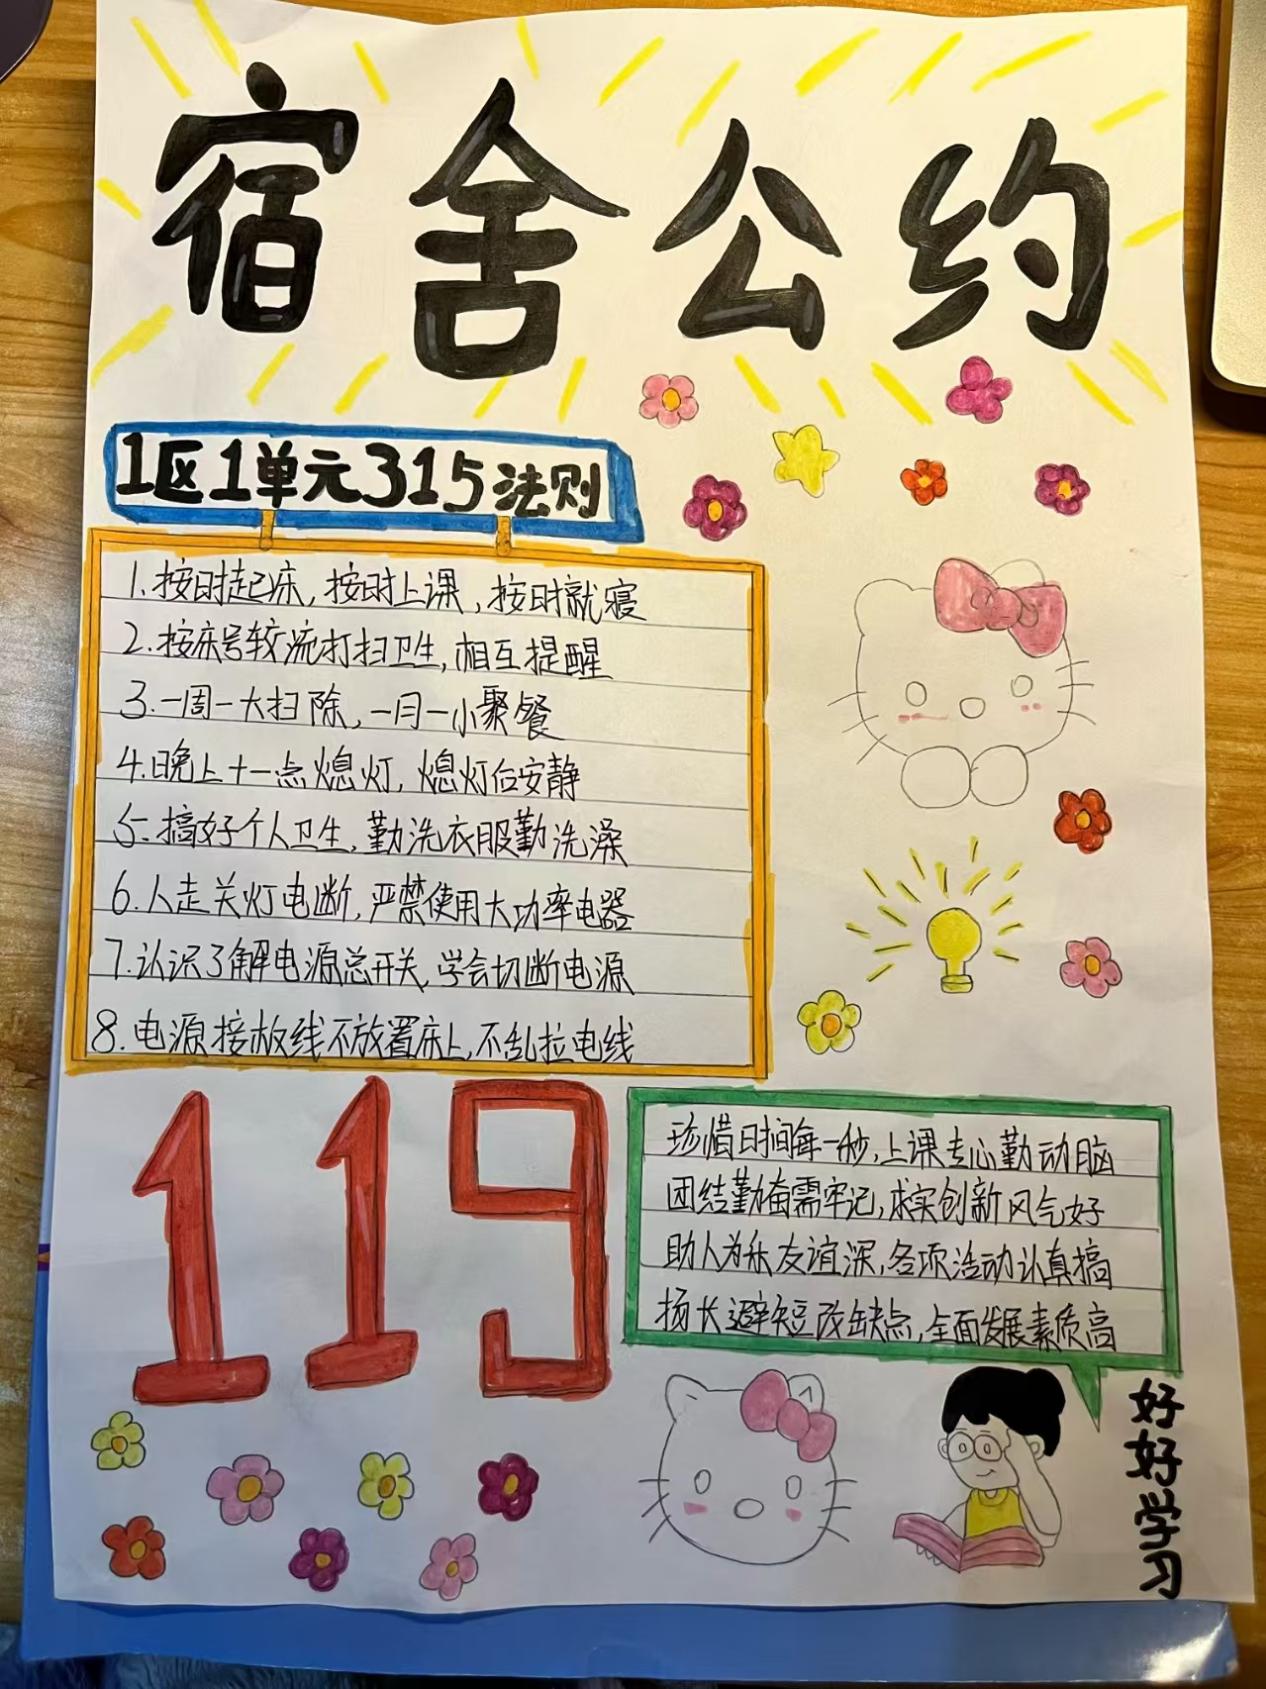 宿舍公约
1区1单元315法则
1.按时起床,按时上课,按时就寝
2.按床号较流打扫卫生,相互提醒
3.一周一大扫除,一月一小聚餐
4.晚上十一点熄灯,熄灯后安静
5.搞好个人卫生,勤洗衣服勤洗澡
6.人走关灯电断,严禁使用大功率电器
7.认识了解电源总开关,学会切断电源
8.电源接板线不放置床上,不乱拉电线
119
珍惜时间每一秒,上课专心勤动脑
团结勤奋需牢记,求实创新风气好
助人为乐友谊深,各项活动认真搞
扬长避短改缺点,全面发展素质高
好好学习